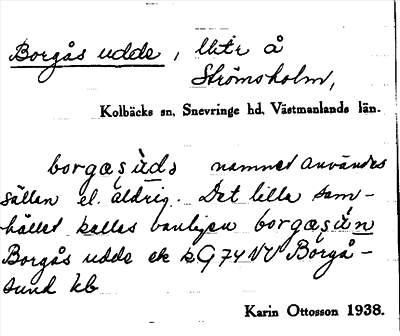 Borgås udde, Utr å
Strömsholm,
Kolbäcks sn, Snevringe hd, Västmanlands län.
borgæsùdə namnet användes
sällan el. aldrig. Det lilla sam-
hället kallas vanligen borgæsùn
Borgås udde ek G74NV Borgå-
sund kb
Karin Ottosson 1938.